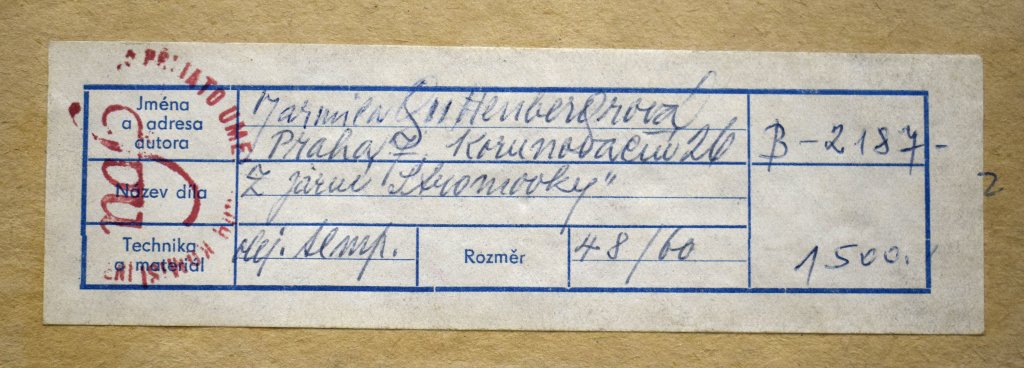 PŘIJATO UMĚ
Jména
a adresa
autora
Jarmila Guttenbergrová
Praha I. Korunovační 26
B-2187-
Název díla
Z jarní "Stromovky"
2
Technika
a materiál
olej. temp.
Rozměr
48/60
1500.-
KOMISÍ